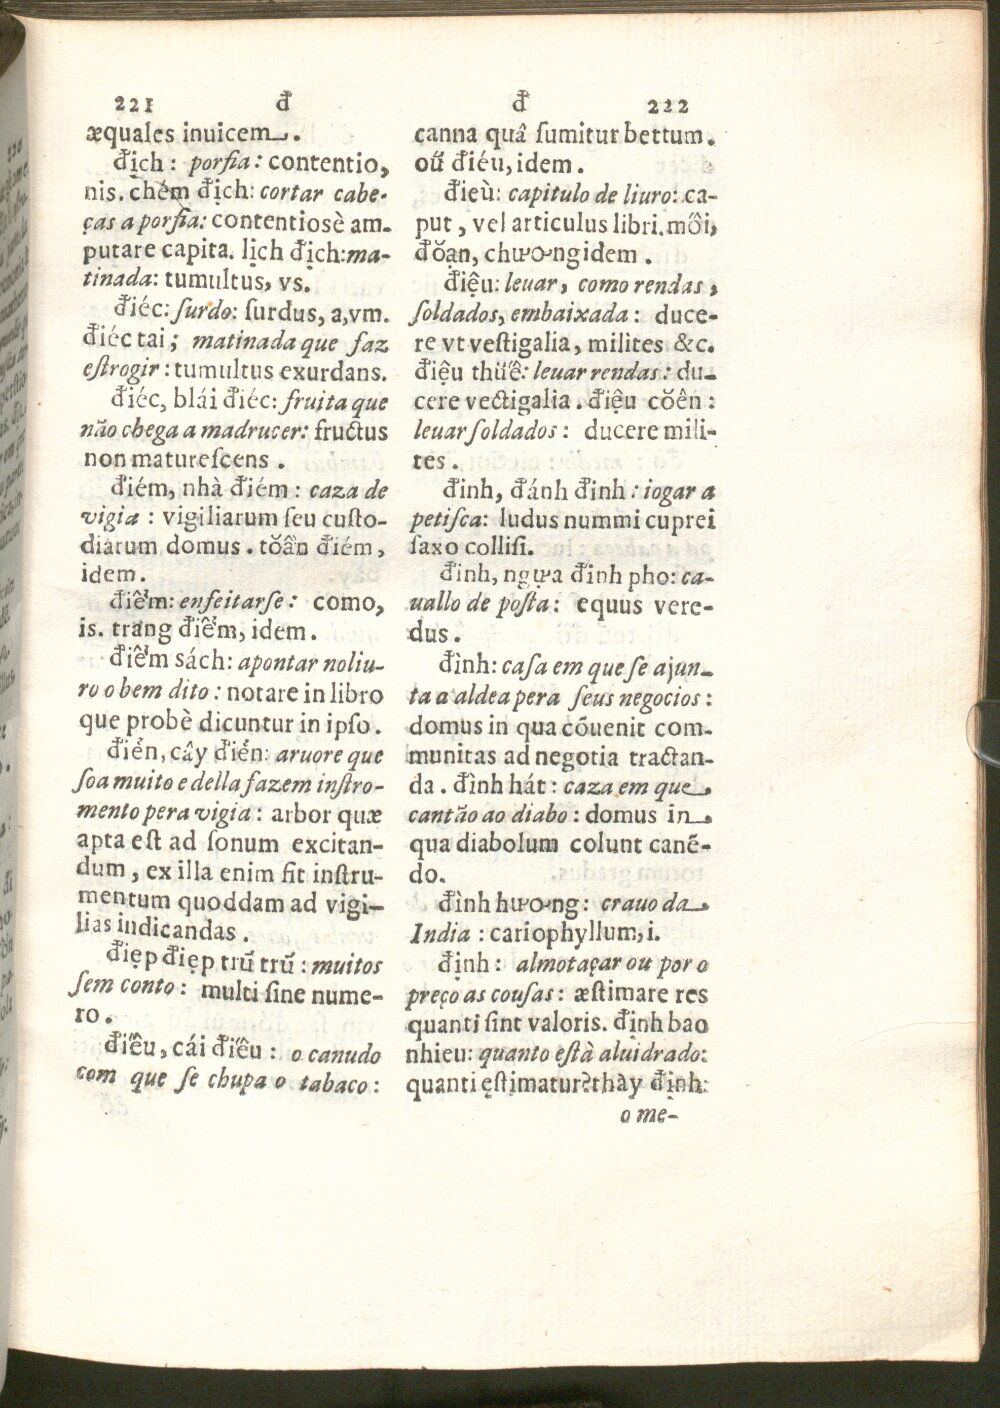 221 đ
æquales inuicem.
địch: porfia: contentio,
nis. chém địch: cortar cabe-
ças a porfia: contentiosè am-
putare capita. lịch địch: ma-
tinada: tumultus, vs.
điéc: ſurdo: ſurdus, a, vm.
điéc tai; matinada que faz
eſtrogir: tumultus exurdans.
điéc, blái điéc: fruita que
não chega a madrucer: fructus
non matureſcens.
điém, nhà điém: caza de
vigia: vigiliarum ſeu cuſto-
diarum domus. tŏân điém,
idem.
điểm: enfeitarſe: como,
is. trang điểm, idem.
điểm sách: apontar no liu-
ro o bem dito: notare in libro
que probè dicuntur in ipſo.
điển, cây điển: aruore que
ſoa muito e della fazem inſtro-
mento pera vigia: arbor quæ
apta eſt ad ſonum excitan-
dum, ex illa enim fit inſtru-
mentum quoddam ad vigi-
lias indicandas.
điẹp điẹp trũ trũ: muitos
ſem conto: multi ſine nume-
ro.
điếu, cái điếu: o canudo
com que ſe chupa o tabaco:
đ 222
canna quâ ſumitur bettum.
où điéu, idem.
đieù: capitulo de liuro: ca-
put, vel articulus libri. mổi,
đŏạn, chương idem.
điệu: leuar, como rendas,
ſoldados, embaixada: duce-
re vt veſtigalia, milites &c.
điệu thüế: leuar rendas: du-
cere vectigalia. điệu cŏên:
leuar ſoldados: ducere mili-
tes.
đinh, đánh đinh: iogar a
petiſca: ludus nummi cuprei
ſaxo colliſi.
đinh, ngựa đinh pho: ca-
uallo de poſta: equus vere-
dus.
đình: caſa em que ſe ajun-
ta a aldea pera ſeus negocios:
domus in qua cõuenit com-
munitas ad negotia tractan-
da. đình hát: caza em que
cantão ao diabo: domus in
qua diabolum colunt canẽ-
do.
đình hương: crauo da
India: cariophyllum, i.
định: almotaçar ou por o
preço as couſas: æſtimare res
quanti ſint valoris. định bao
nhieu: quanto eſtà aluidrado:
quanti ęſtimatur? thày định:
o me-